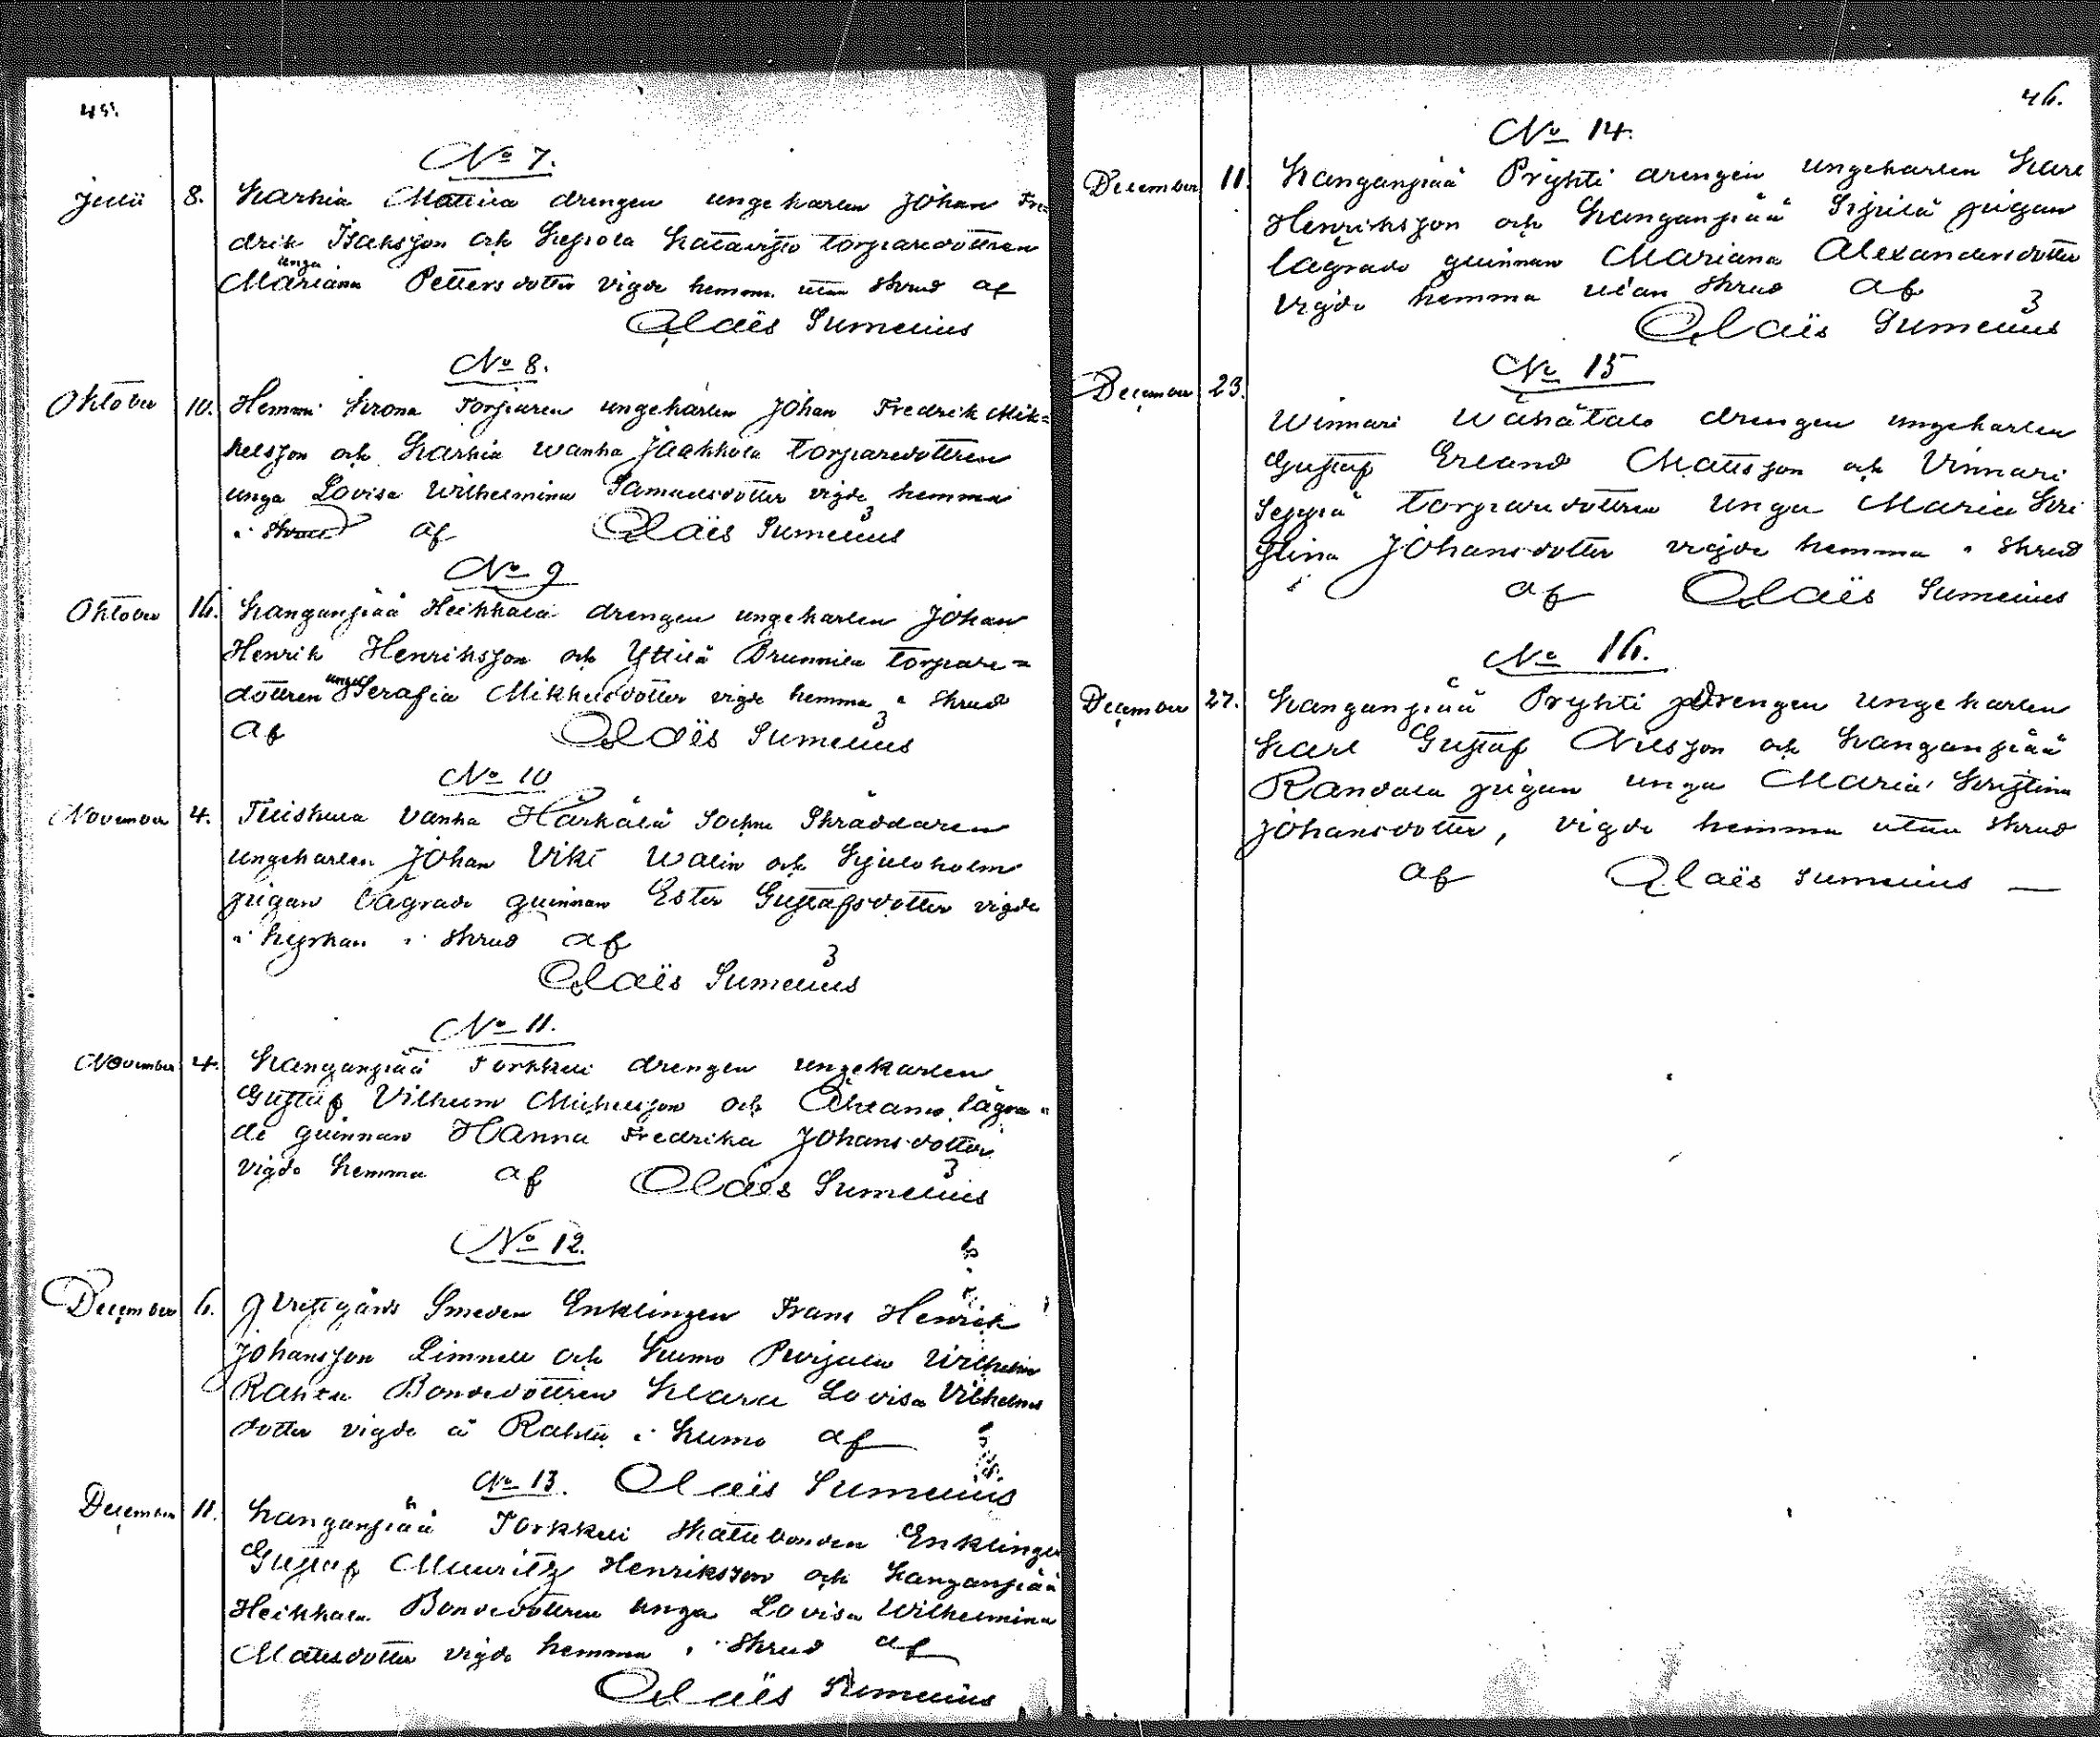 45.
No 7.
Julii 8. Karhia Mattila drengen ungekarlen Johan Fre=
drik Isaksson och Lepola Katavisto torparedottren
unga
Mariana Pettersdotter vigde hemma utan skrud af
Claës Sumelius
No 8.
Oktober 10. Hemmi Krona Torparen ungekarlen Johan Fredrik Mik=
kelsson och Karhia Wanha Jaakkola torparedottren
unga Lovisa Wilhelmina Samuelsdotter vigde hemma
i skrud af Claës Sumelius
No 9
Oktober 16. Kanganpää Heikkala drengen ungekarlen Johan
Henrik Henriksson och Yttilä Brunnila torpare=
dottren unga Serafia Mikkelsdotter vigde hemma i skrud
af Claës Sumelius
No 10
November 4. Vanha Härkälä Sockne Skräddaren
ungekarlen Johan Walin och Kjuloholm
pigan lägrade quinnan Ester Gustafsdotter vigde
i kyrkan i skrud af
Claës Sumelius
No 11.
November 4. Kanganpää Torkkeli drengen ungekarlen
Gustaf Vilhelm Michelsson och lägra=
de quinnan Hanna Fredrika Johansdotter
vigde hemma af Claës Sumelius
No 12.
December 6. Smeden Enklingen Frans Henrik
Johansson Limnell och Kumo Purjala Wilhelm
Rahtu Bondedottren Klara Lovisa Vilhelms
dotter vigde å Rahtu i Kumo af
No 13. Claës Sumelius
December 11. Kanganpää Torkkeli Skattebonden Enklingen
Gustaf Mauritz Henriksson och Kanganpää
Heikkala Bondedottren unga Lovisa Wilhelmina
Matesdotter vigde hemma i skrud af
Claës Sumelius
46.
No 14.
December 11. Kanganpää Pryhti drengen ungekarlen Karl
Henriksson och Kanganpää pigan
lägrade quinnan Mariana Alexandersdotter
vigde hemma utan skrud af
Claës Sumelius
No 15
December 23. Winnari Wähätalo drengen ungekarlen
Gustaf Erland Mattsson och Vinnari
Seppä torparedottren unga Maria Kri
stina Johansdotter vigde hemma i skrud
af Claës Sumelius
No 16.
December 27. Kanganpää Pryhti Drengen ungekarlen
Karl Gustaf Nilsson och Kanganpää
Randala pigan unga Maria Kristina
Johansdotter, vigde hemma utan skrud
af Claës Sumelius —